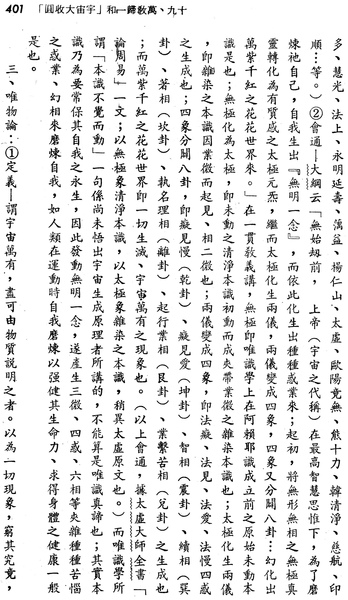 十九、萬教歸一和「宇宙大收圓」 401
多、慧光、法上、永明延壽、蕅益、楊仁山、太虛、歐陽竟無、熊十力、韓清淨、慈航、印
順…等。）②會通—大綱云「無始刧前，上帝（宇宙之代稱）在最高智慧思惟下，為了磨
煉祂自己，自我生出『無明一念』，而依此化生出種種惑業來；起初，將無形無相之無極真
靈轉化為有質感之太極元炁，繼而太極化生兩儀，兩儀變成四象，四象又分闢八卦…幻化出
萬紫千紅之花花世界來。」在一貫教義講，無極即唯識學上在阿賴耶識成立前之原始未動本
識是也；無極化為太極，即未動之清淨本識初動而成夾帶業微之雜染本識也；太極化生兩儀
，即雜染之本識因業微而起見、相二微也；兩儀變成四象，即法癡、法見、法愛、法慢四惑
之生成也；四象分闢八卦，即癡見慢（乾卦）、癡見愛（坤卦）、智相（震卦）、續相（巽
卦）、著相（坎卦）、執名理相（離卦）、起行業相（艮卦）、業繫苦相（兌卦）之生成也
；而萬紫千紅之花花世界即一切生滅、宇宙萬有之現象也。（以上會通，據太虛大師全書「
論周易」一文；以無極象清淨本識，以太極象雜染之本識，稍異太虛原文也。）而唯識學所
謂「本識不覺而動」一句係尚未悟出宇宙生成原理者所講的，不能算是唯識真諦也；其實本
識乃為要常保其自我之永生，因此發動無明一念，遂產生三微、四惑、六相等夾雜種種苦惱
之惑業、幻相來磨煉自我，如人類在運動時自我磨煉以強健其生命力、求得身體之健康一般
是也。
三、唯物論：①定義—謂宇宙萬有，盡可由物質說明之者。以為一切現象，窮其究竟，